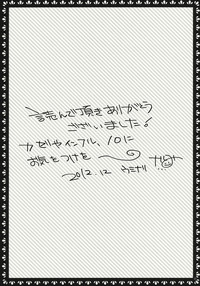 読んで頂きありがとう
ございました!
カゼやインフル、ノロに
お気をつけを
2012.12